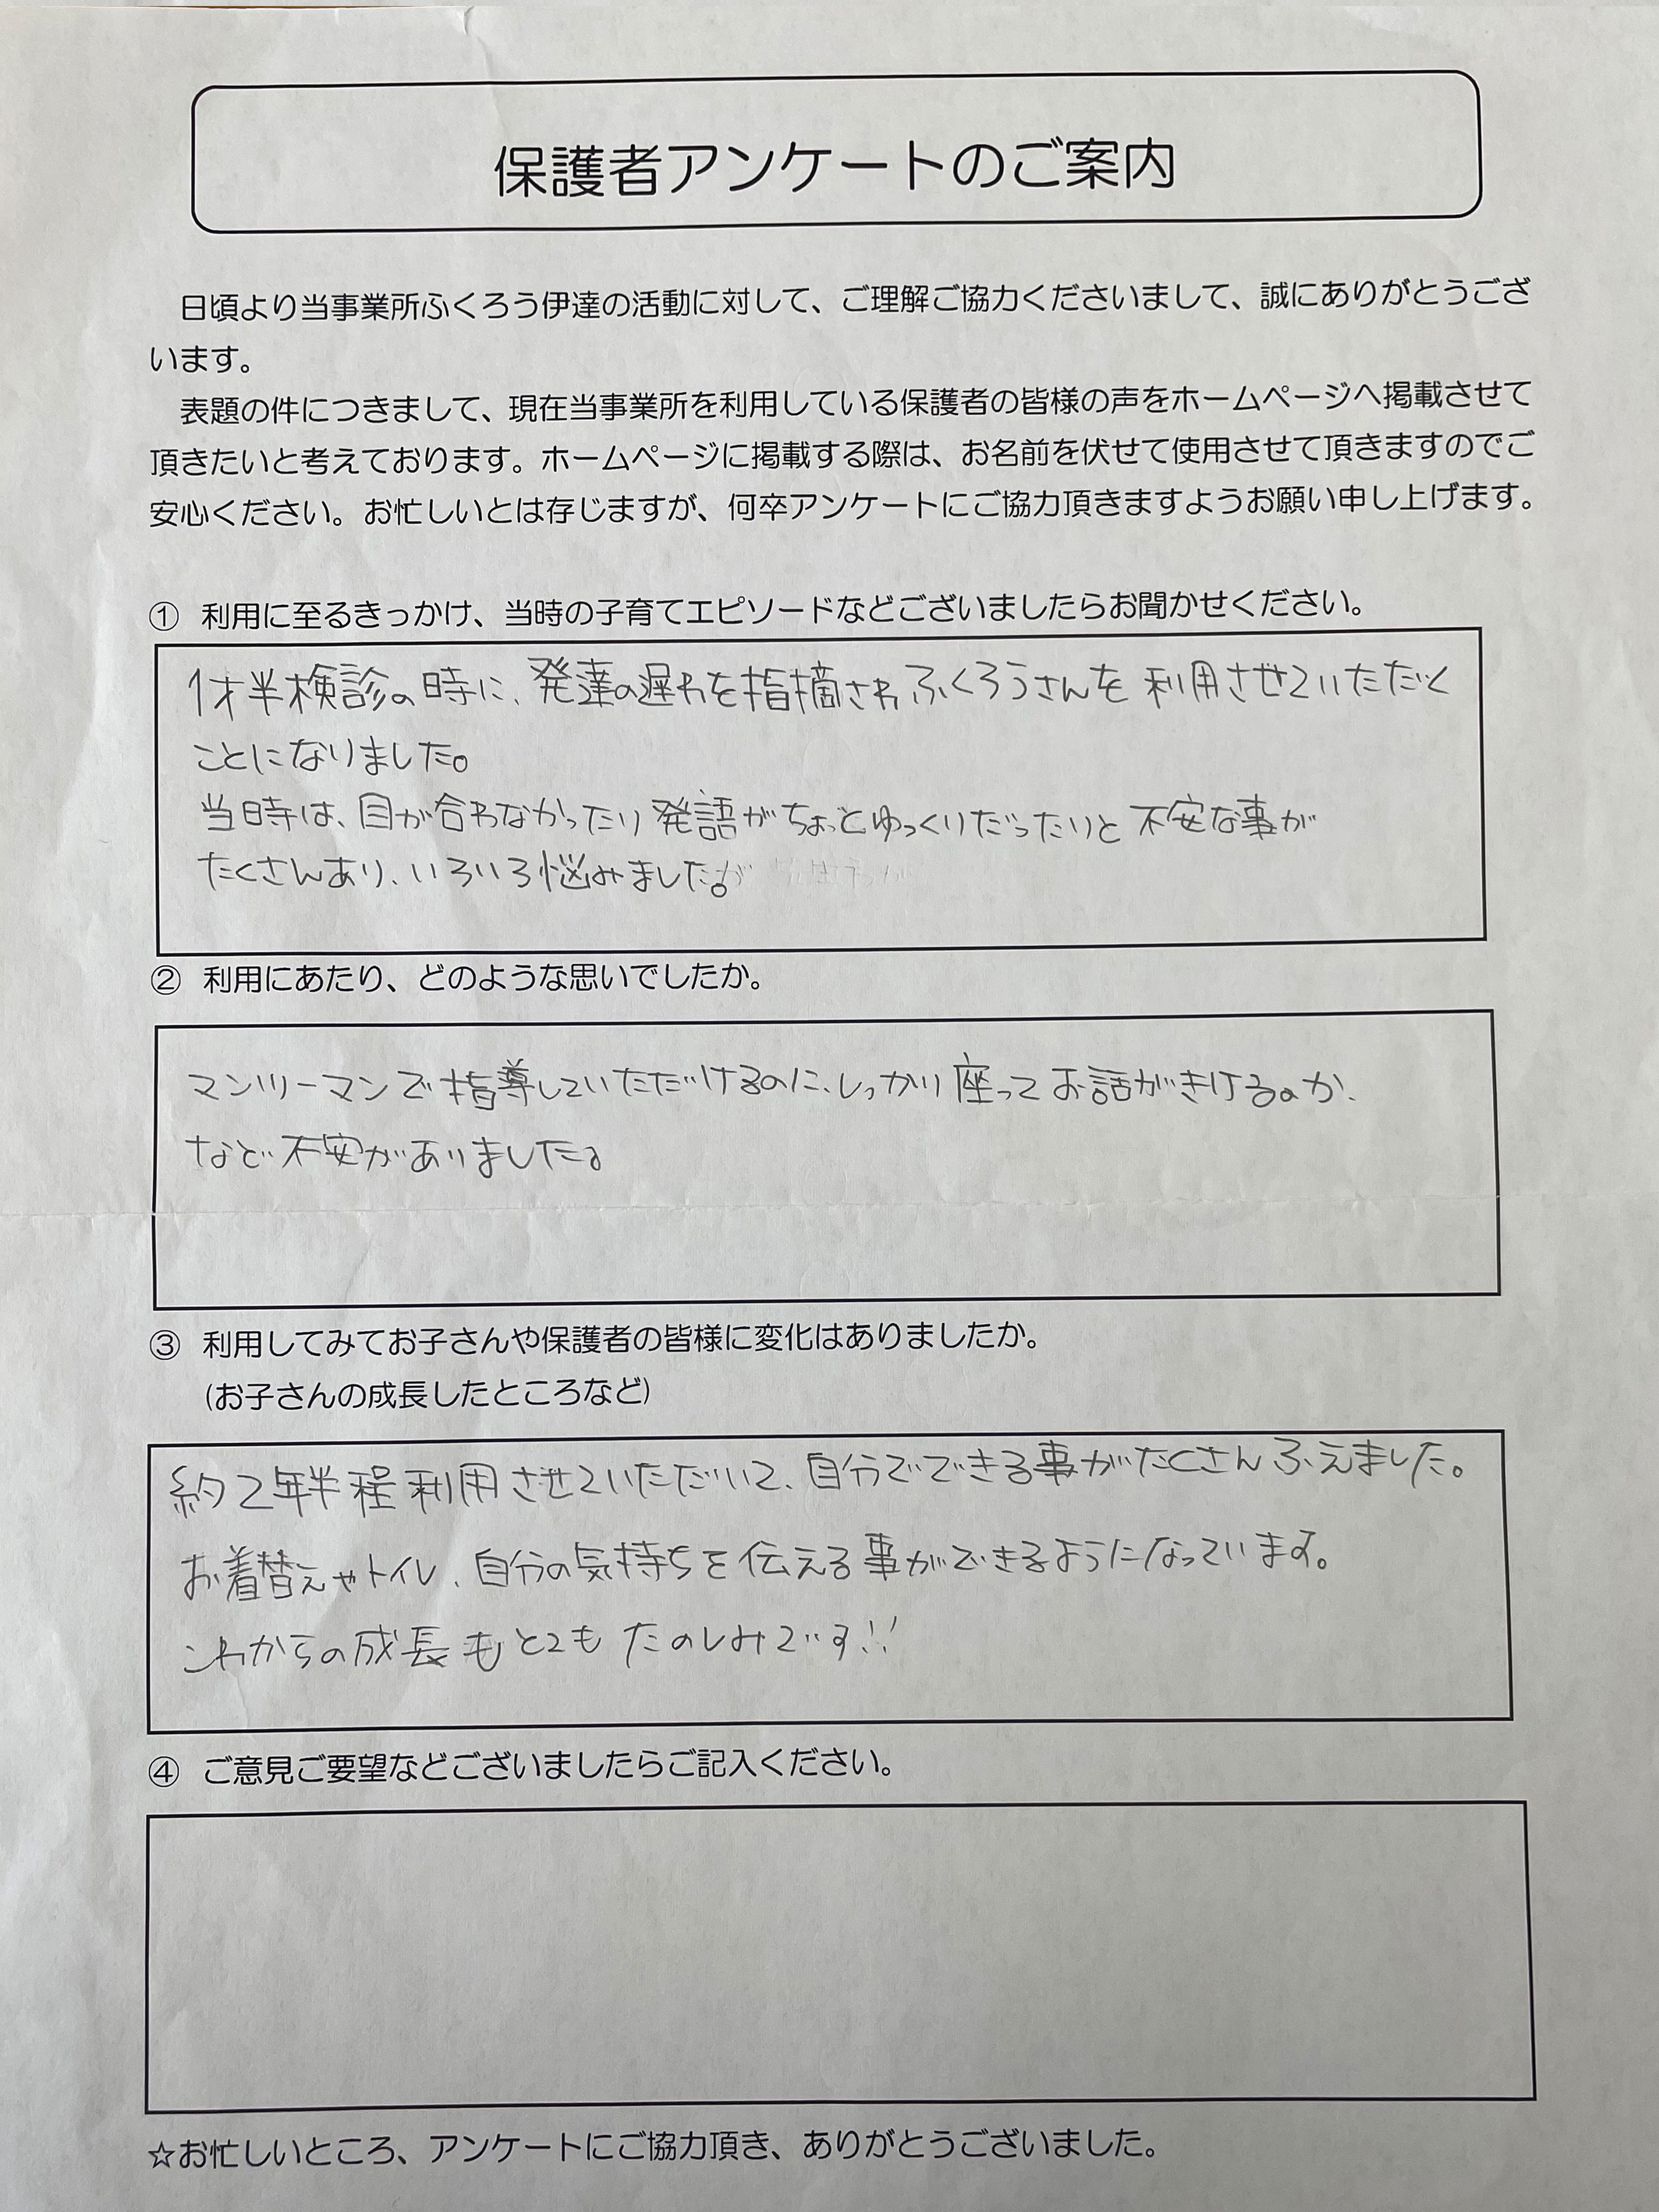 保護者アンケートのご案内
日頃より当事業所ふくろう伊達の活動に対して、ご理解ご協力くださいまして、誠にありがとうござ
います。
表題の件につきまして、現在当事業所を利用している保護者の皆様の声をホームページへ掲載させて
頂きたいと考えております。ホームページに掲載する際は、お名前を伏せて使用させて頂きますのでご
安心ください。お忙しいとは存じますが、何卒アンケートにご協力頂きますようお願い申し上げます。
① 利用に至るきっかけ、当時の子育てエピソードなどございましたらお聞かせください。
1才半検診の時に、発達の遅れを指摘されふくろうさんを利用させていただく
ことになりました。
当時は、目が合わなかったり発語がちょっとゆっくりだったりと不安な事が
たくさんあり、いろいろ悩みました。
② 利用にあたり、どのような思いでしたか。
マンツーマンで指導していただけるのに、しっかり座ってお話がきけるのか、
など不安がありました。
③ 利用してみてお子さんや保護者の皆様に変化はありましたか。
(お子さんの成長したところなど)
約2年半程利用させていただいて、自分でできる事がたくさんふえました。
お着替えやトイレ、自分の気持ちを伝える事ができるようになっています。
これからの成長もとてもたのしみです!!
④ ご意見ご要望などございましたらご記入ください。
☆お忙しいところ、アンケートにご協力頂き、ありがとうございました。